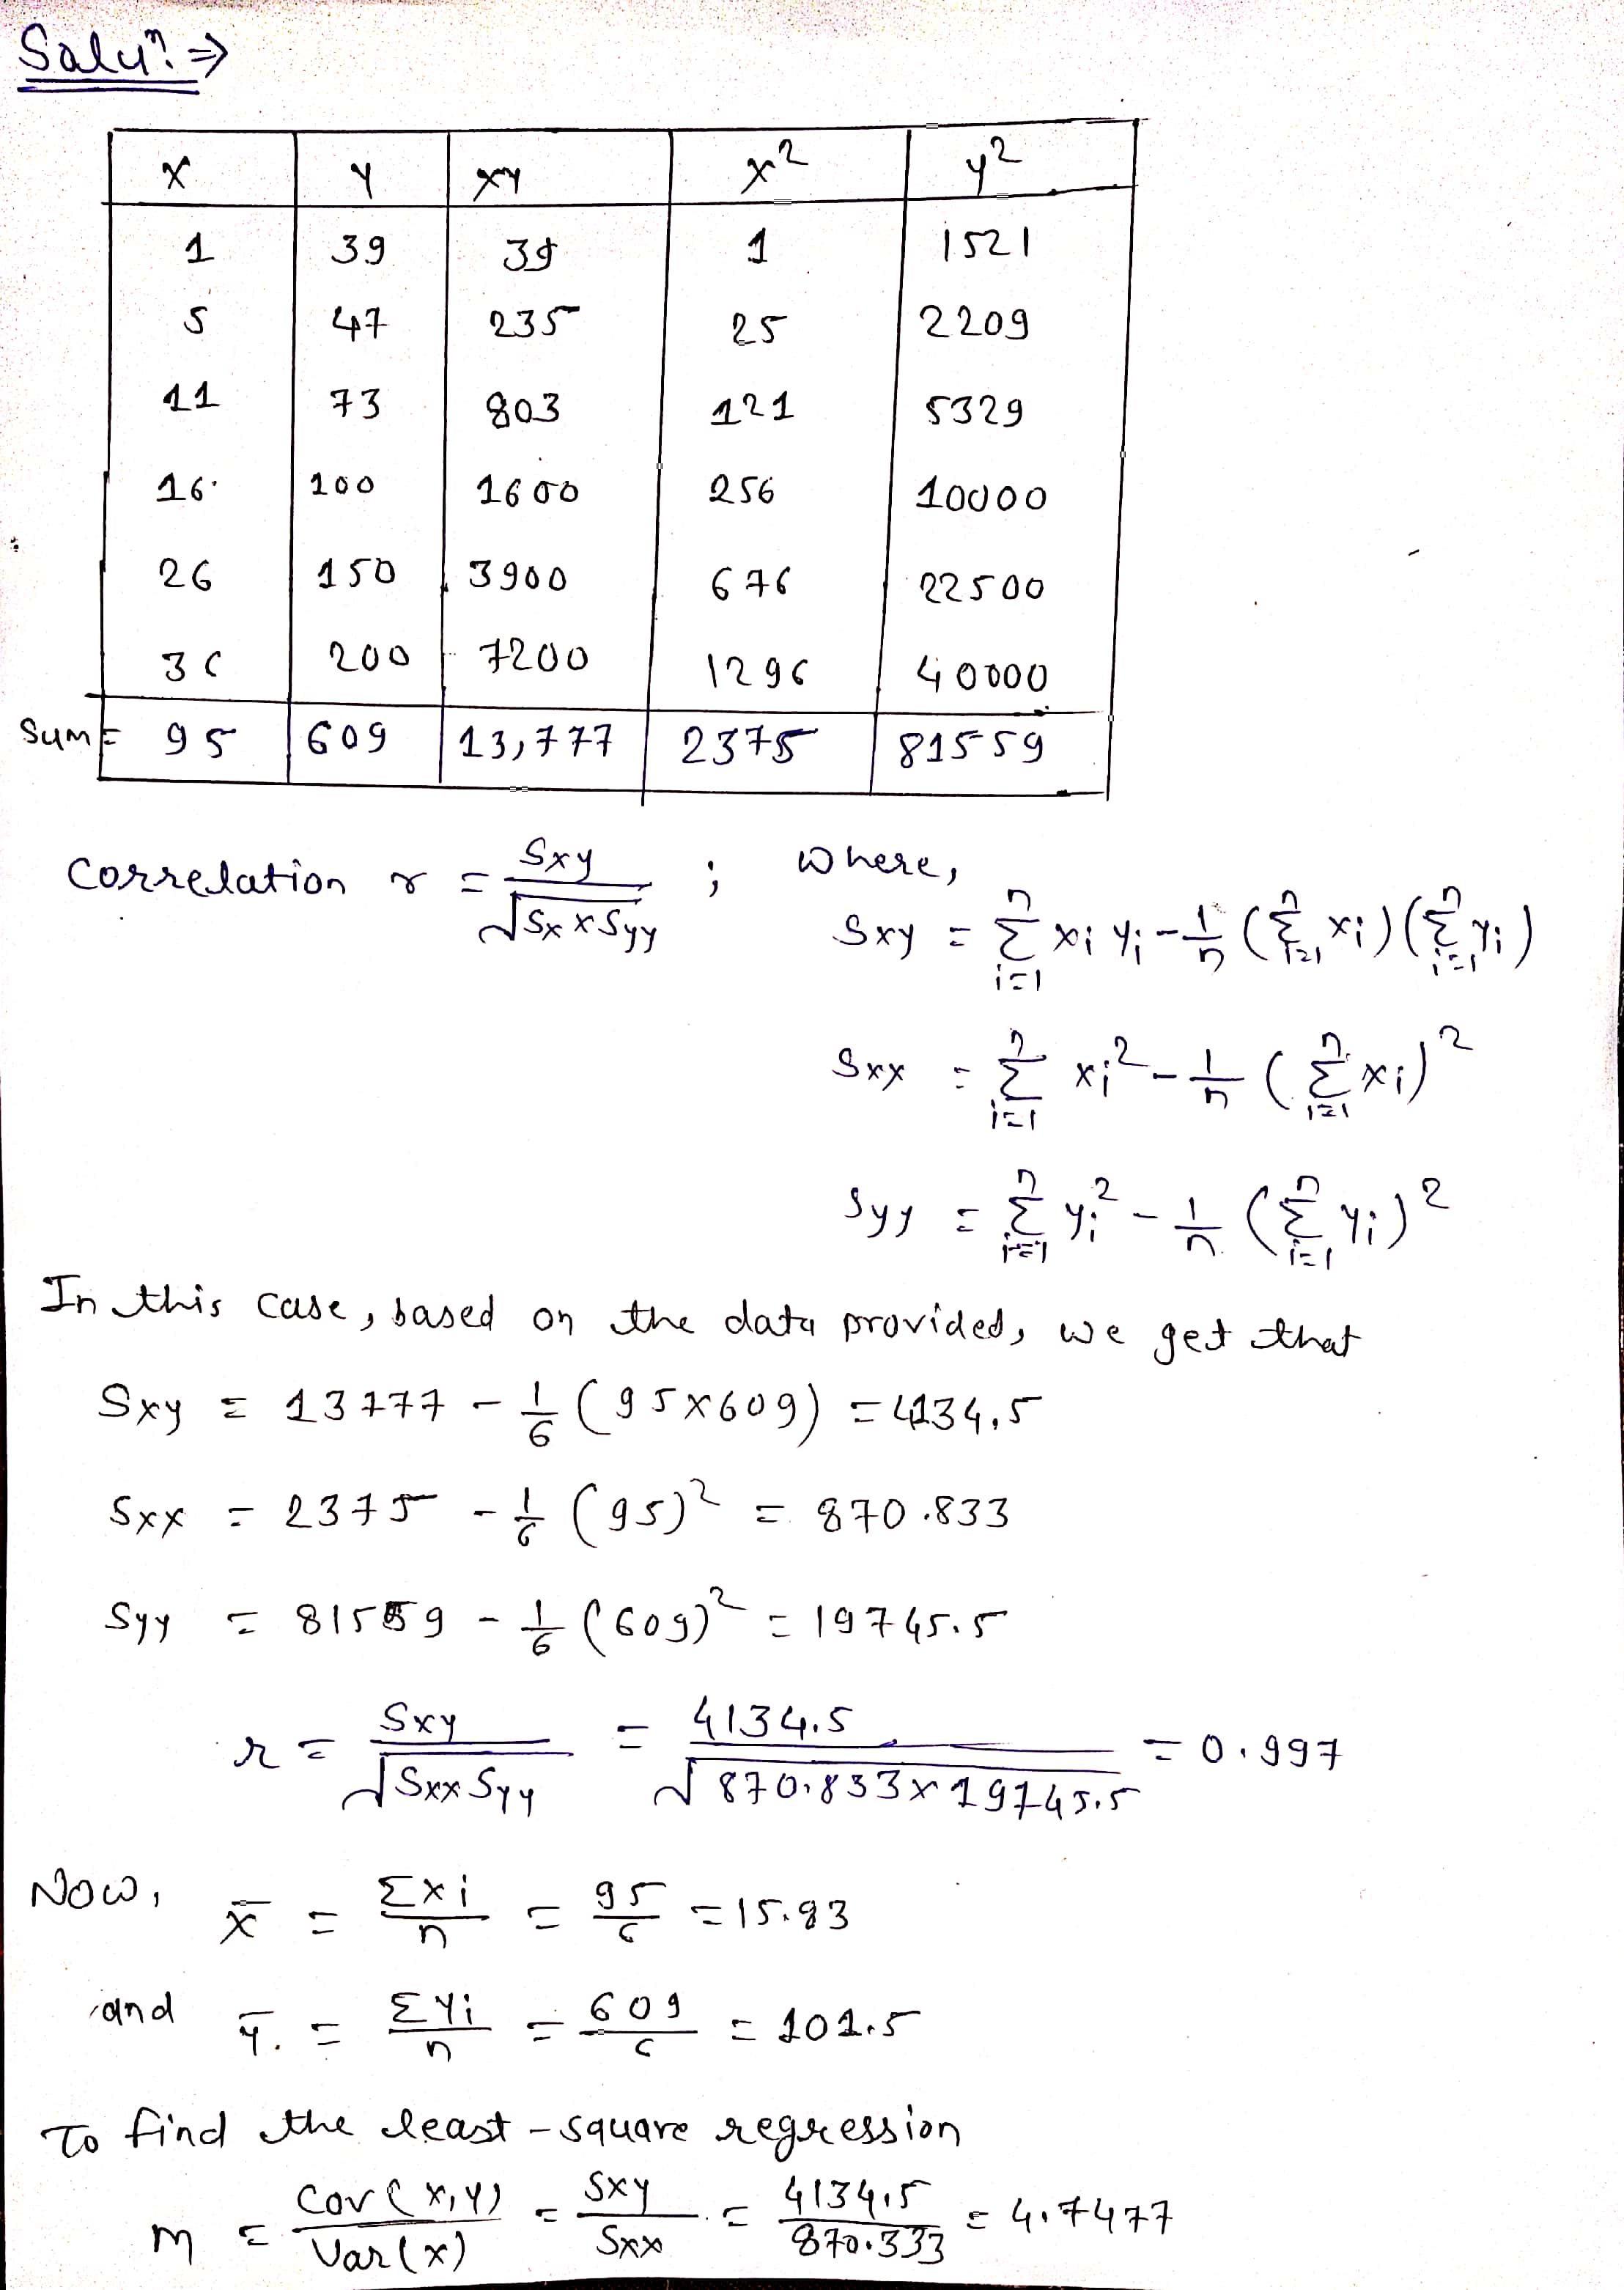 Soluⁿ. ⇒
x y xy x² y²
1 39 39 1 1521
5 47 235 25 2209
11 73 803 121 5329
16 100 1600 256 10000
26 150 3900 676 22500
36 200 7200 1296 40000
Sum = 95 609 13,777 2375 81559
Correlation r = Sxy / √Sxx Syy ; where,
Sxy = Σⁿᵢ₌₁ xᵢ yᵢ - 1/n (Σⁿᵢ₌₁ xᵢ)(Σⁿᵢ₌₁ yᵢ)
Sxx = Σⁿᵢ₌₁ xᵢ² - 1/n (Σⁿᵢ₌₁ xᵢ)²
Syy = Σⁿᵢ₌₁ yᵢ² - 1/n (Σⁿᵢ₌₁ yᵢ)²
In this case, based on the data provided, we get that
Sxy = 13777 - 1/6 (95×609) = 4134.5
Sxx = 2375 - 1/6 (95)² = 870.833
Syy = 81559 - 1/6 (609)² = 19745.5
r = Sxy / √Sxx Syy = 4134.5 / √870.833×19745.5 = 0.997
Now, x̄ = Σxi / n = 95/6 = 15.83
and ȳ. = Σyi / n = 609/6 = 101.5
To find the least-square regression
m = Cov(x,y) / Var(x) = Sxy / Sxx = 4134.5 / 870.333 = 4.7477